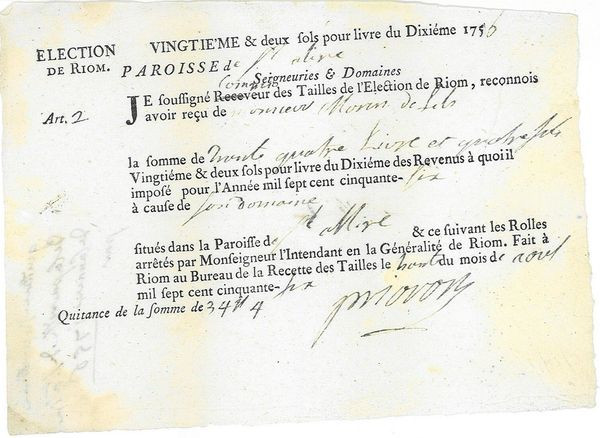 ELECTION
DE RIOM.
VINGTIE'ME & deux sols pour livre du Dixiéme 1756
PAROISSE de St alire
Seigneuries & Domaines
Commis
JE soussigné Receveur des Tailles de l'Election de Riom, reconnois
Art. 2
avoir reçu de monsieur
la somme de trente quatre Livre et quatre sols
Vingtiéme & deux sols pour livre du Dixiéme des Revenus à quoi il
imposé pour l'Année mil sept cent cinquante-six
à cause de son domaine
St allire
situés dans la Paroisse de & ce suivant les Rolles
arrêtés par Monseigneur l'Intendant en la Généralité de Riom. Fait à
Riom au Bureau de la Recette des Tailles le trente du mois de avril
mil sept cent cinquante-six
Quitance de la somme de 34ᵗᵗ 4